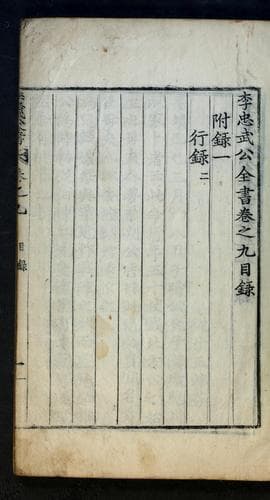 李忠武公全書卷之九目錄
附錄一
行錄二
卷之九
目錄
一